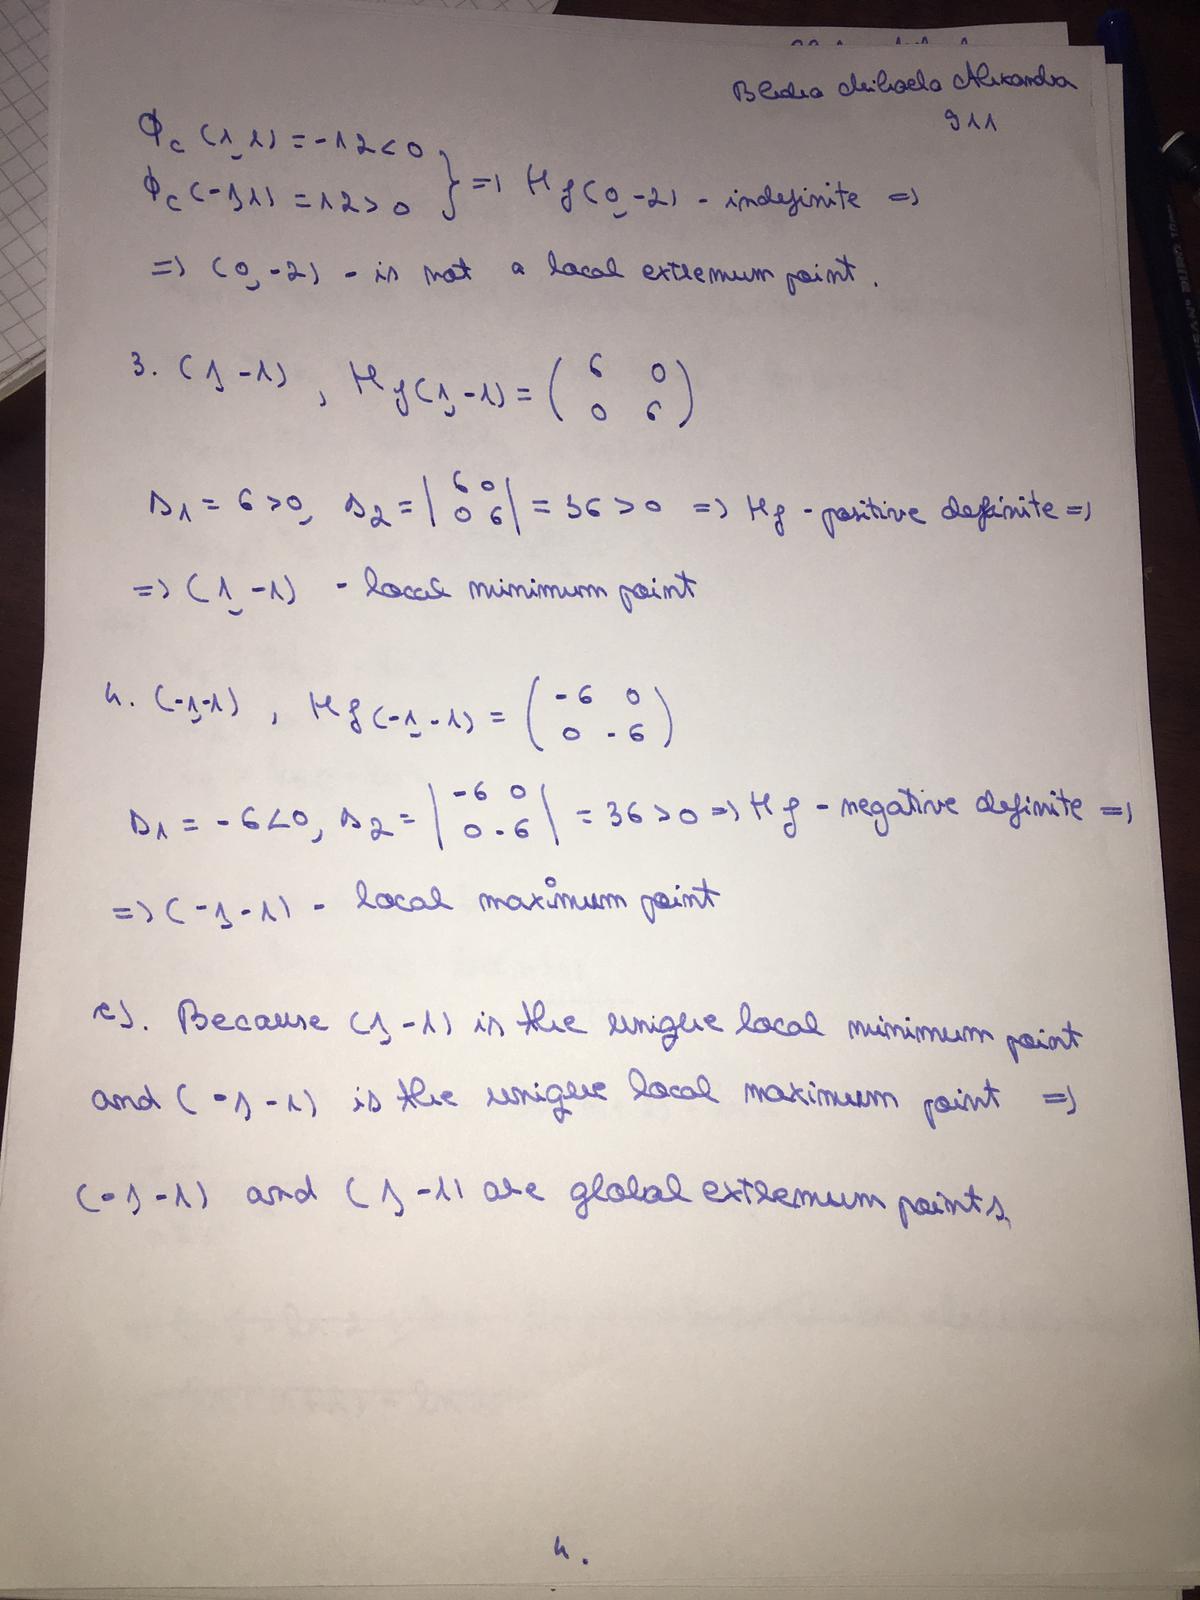 Mihaela Alexandra
911
Φc (1,1) = -12 < 0
Φc (-1,1) = 12 > 0 } => Hf(0,-2) - indefinite =>
=> (0,-2) - is not a local extremum point.
3. (1,-1), Hf(1,-1) = ( 6 0
0 6 )
Δ1 = 6 > 0, Δ2 = | 6 0
0 6 | = 36 > 0 => Hf - positive definite =>
=> (1,-1) - local minimum point
4. (-1,-1), Hf(-1,-1) = ( -6 0
0 -6 )
Δ1 = -6 < 0, Δ2 = | -6 0
0 -6 | = 36 > 0 => Hf - negative definite =>
=> (-1,-1) - local maximum point
c). Because (1,-1) is the unique local minimum point
and (-1,-1) is the unique local maximum point =>
(-1,-1) and (1,-1) are global extremum points.
4.